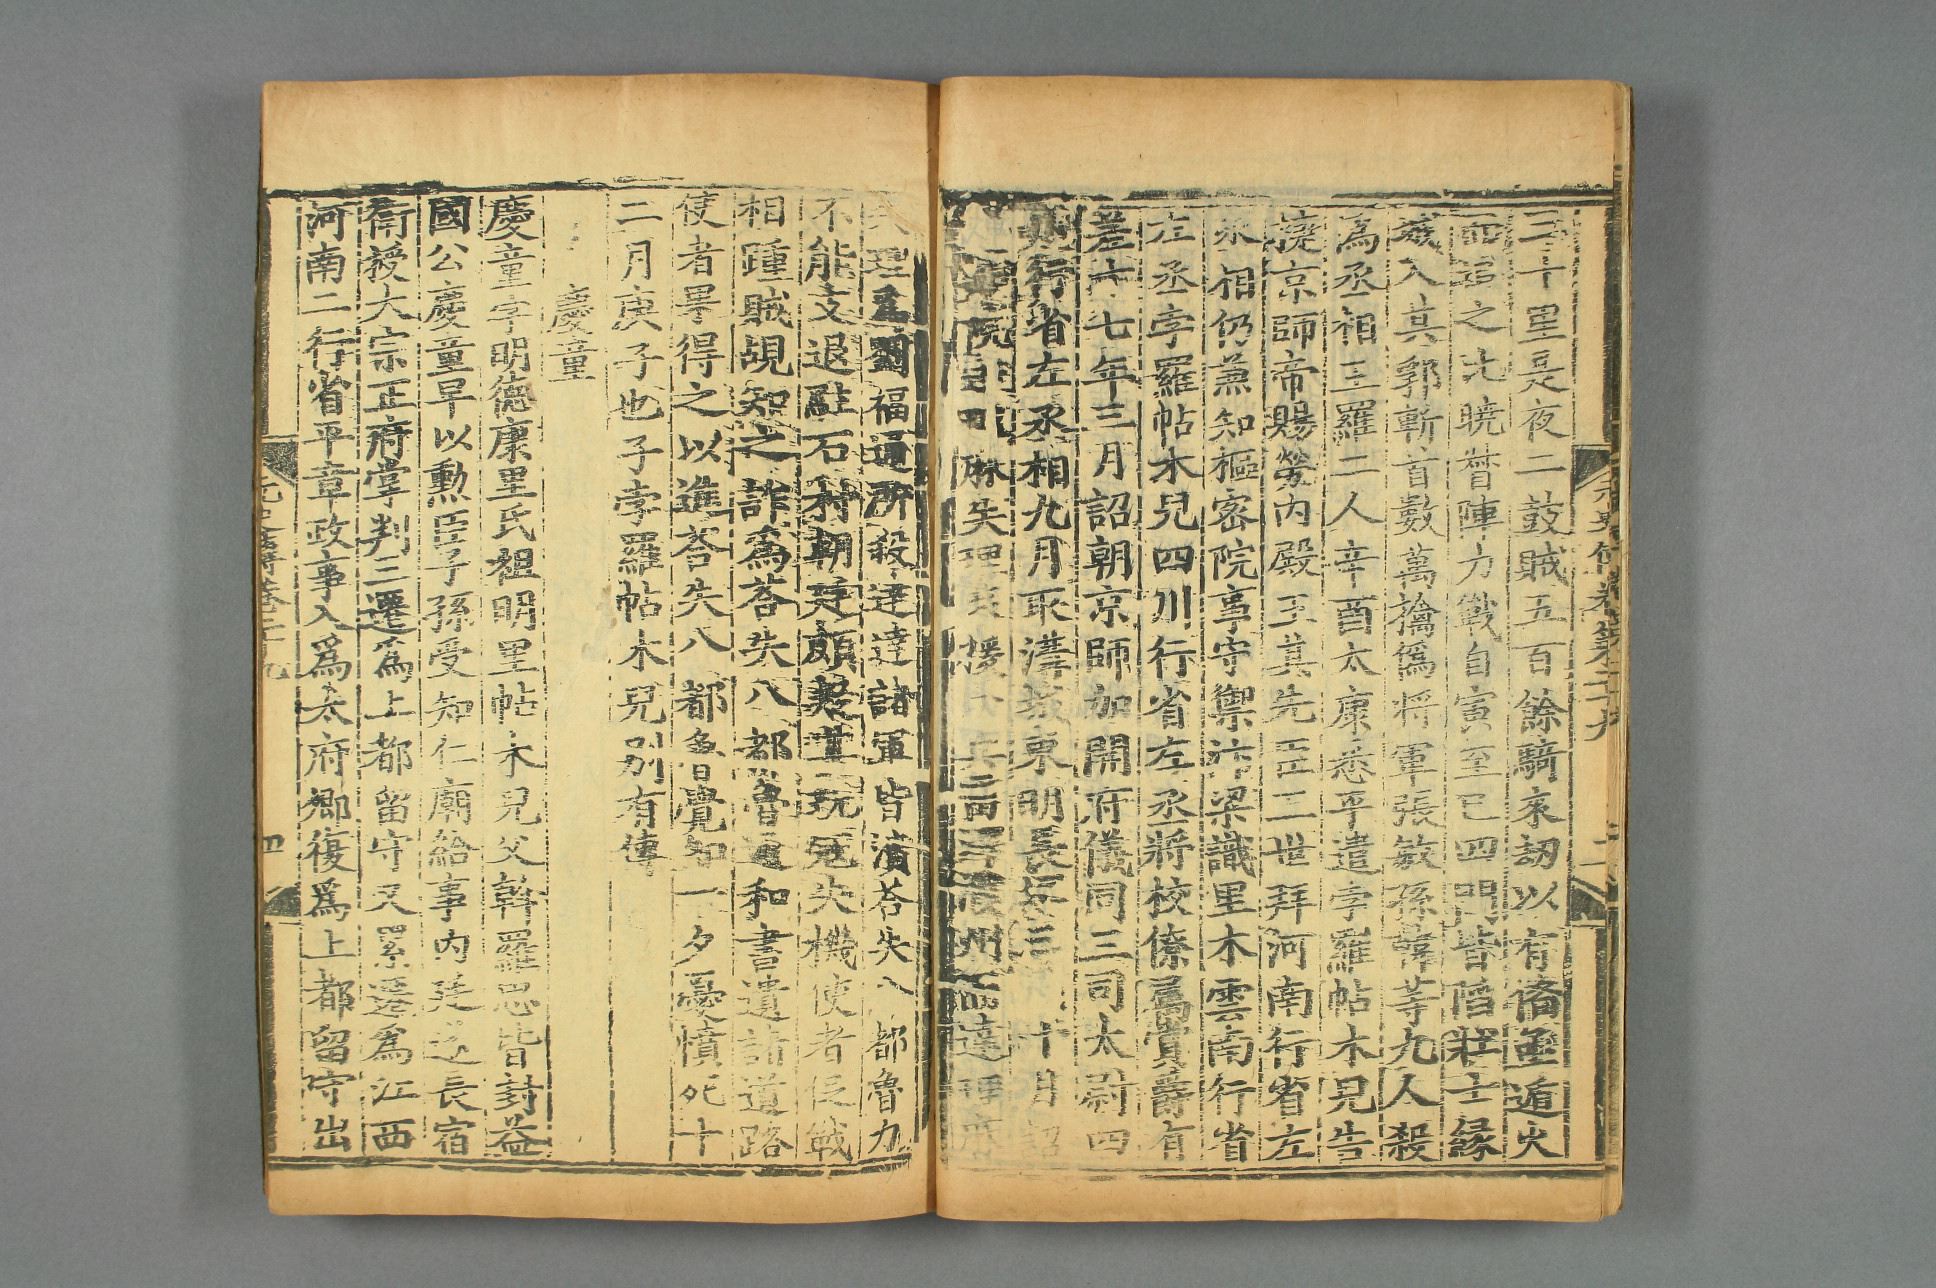 三十里是夜二鼓賊五百餘騎來劫以有俻亟遁火
而追之比曉督陣力戰自寅至巳四門皆陷壯士緣
城入其郛斬首數萬擒僞將軍張敏孫韓等九人殺
爲丞相王羅二人辛酉太康悉平遣孛羅帖木兒告
捷京師帝賜勞內殿王其先臣三世拜河南行省左
丞相仍兼知樞密院事守禦汴梁識里木雲南行省
左丞孛羅帖木兒四川行省左丞將校僚屬賞爵有
差十七年三月詔朝京師加開府儀同三司太尉四
川行省左丞相九月取溝城東明長垣三 十月詔
知院 失理 援 兵 曹州 達
失理爲劉福通所殺達達諸軍皆潰荅失八都魯力
不能支退駐石村朝廷頗疑其玩冠失機使者促戰
相踵賊覘知之詐爲荅失八都魯通和書遺諸道路
使者果得之以進荅失八都魯覺知一夕憂憤死十
二月庚子也子孛羅帖木兒別有傳
慶童
慶童字明德康里氏祖明里帖木兒父斡羅思皆封益
國公慶童早以勳臣子孫受知仁廟給事內廷遂長宿
衛授大宗正府掌判三遷爲上都留守又累遷爲江西
河南二行省平章政事入爲太府卿復爲上都留守出
元史列傳卷三十九
四